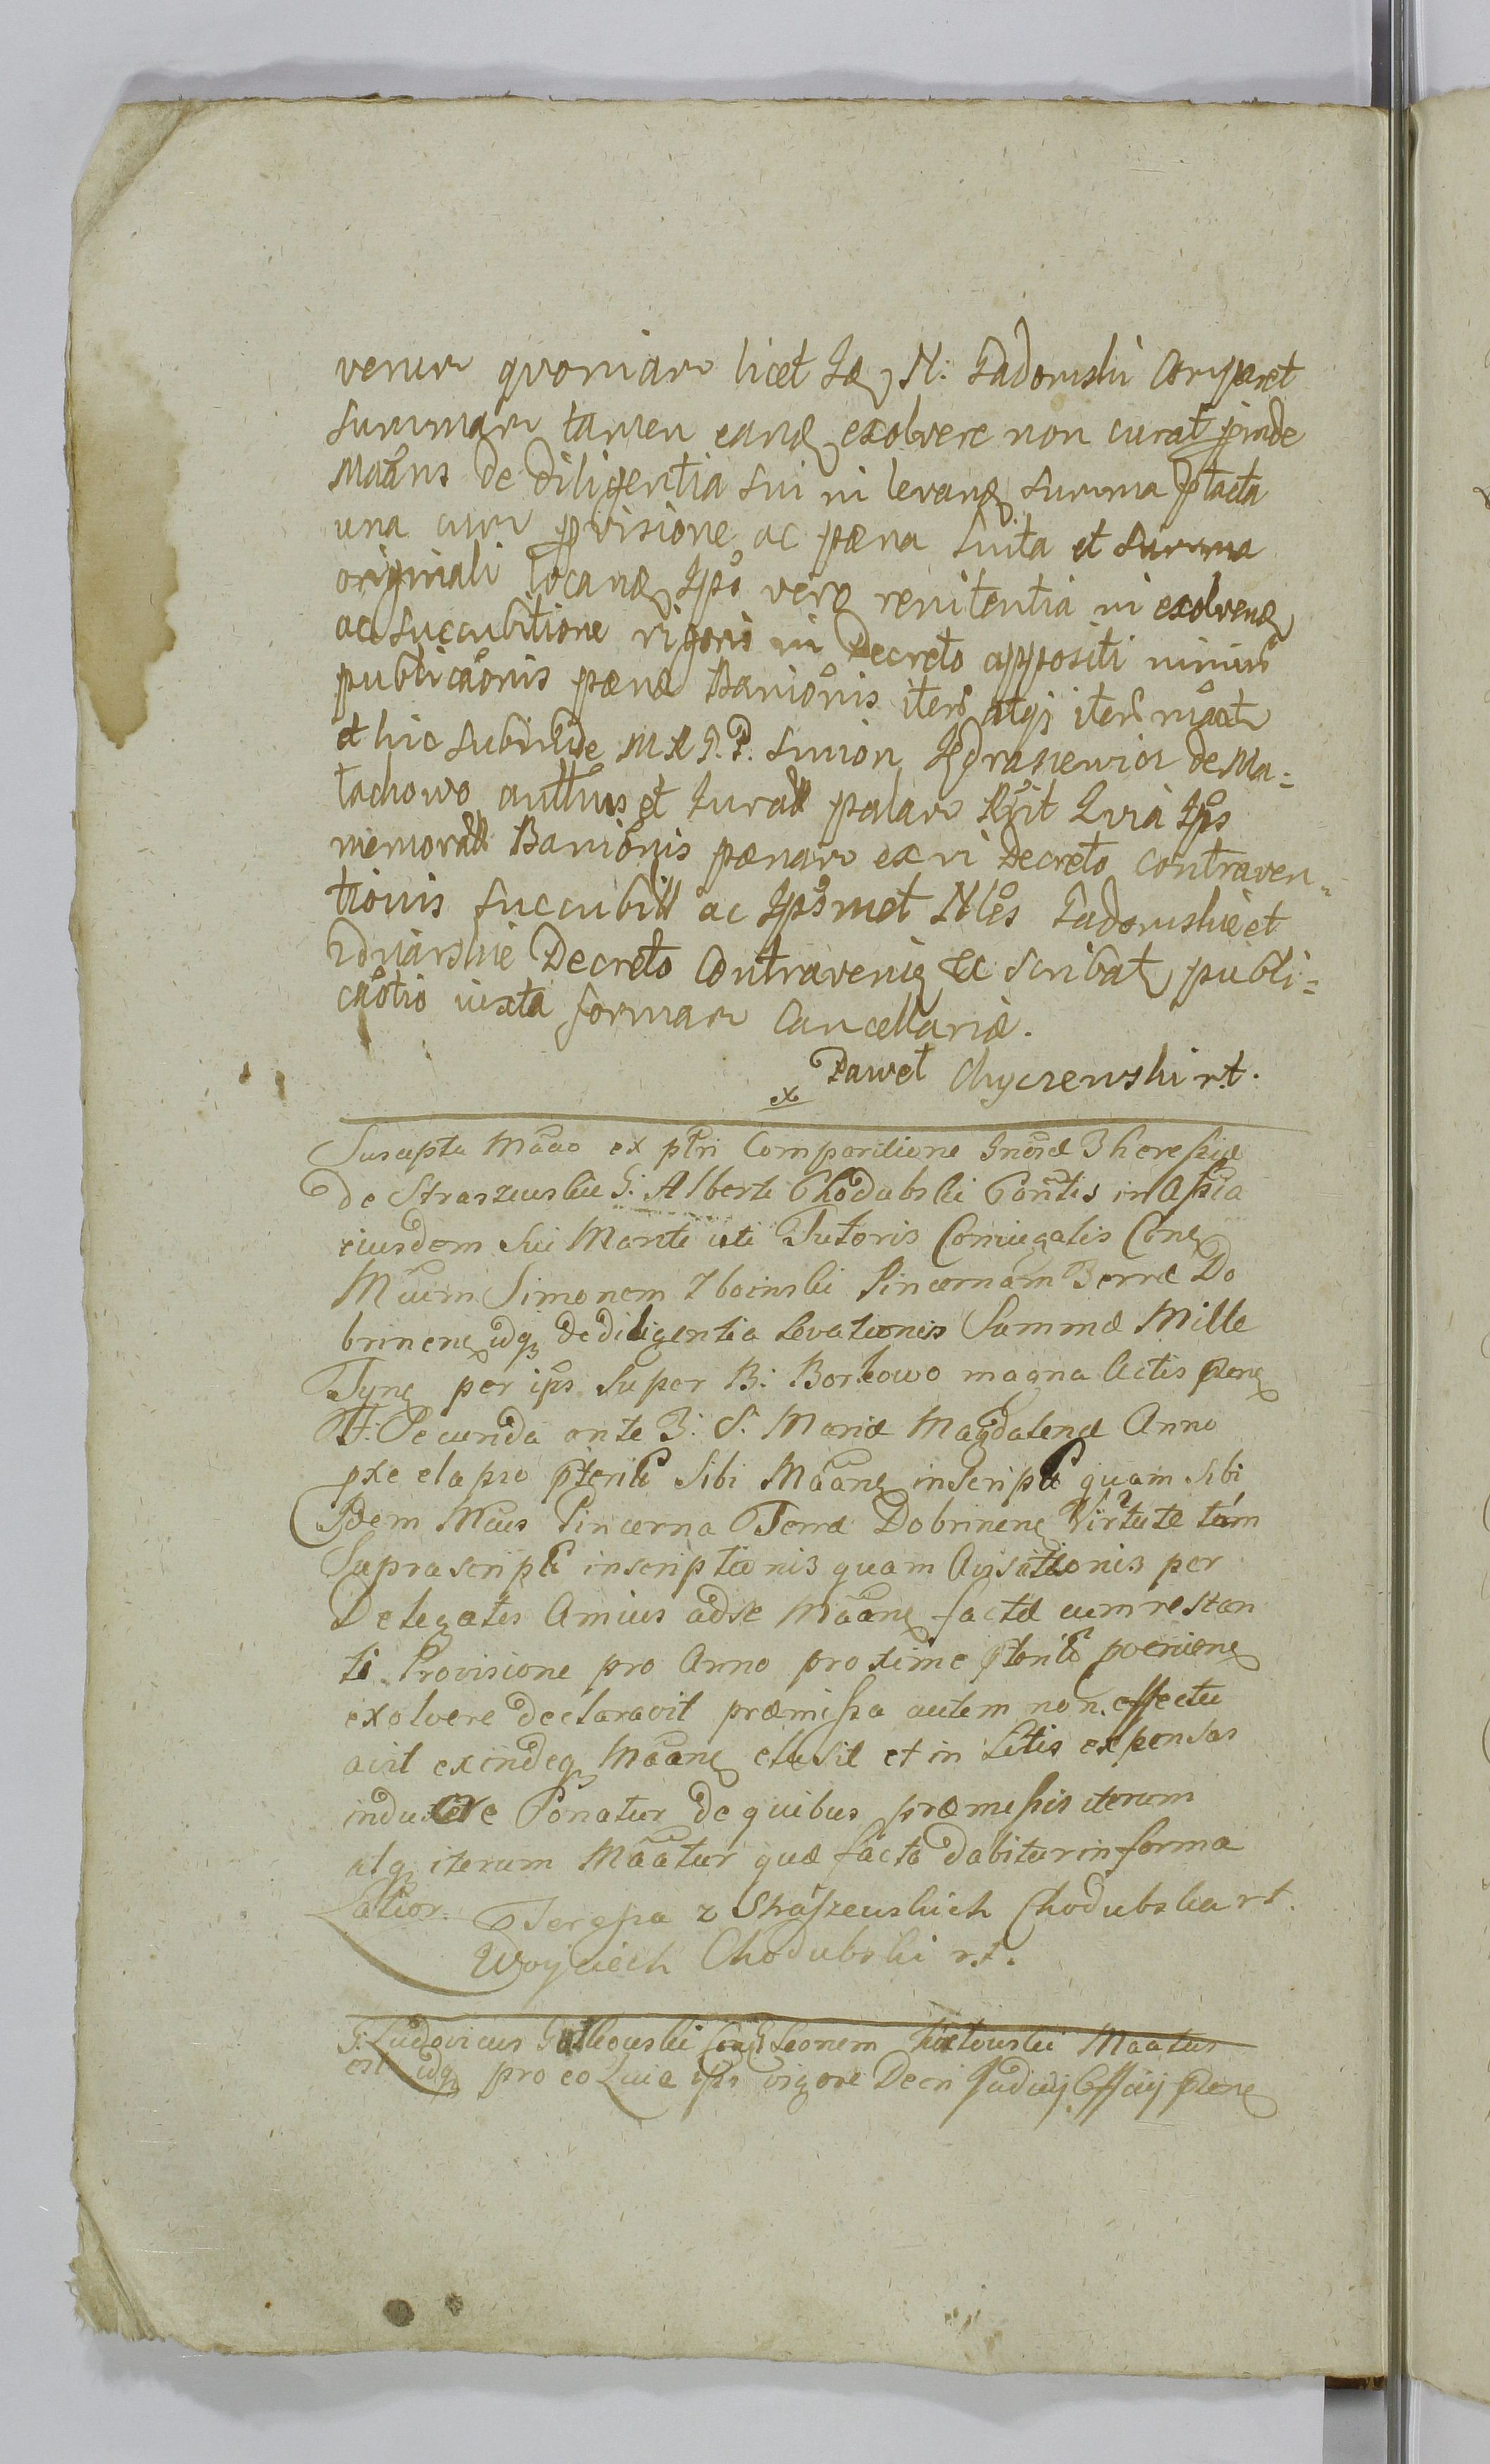 venim quoniam licet Idē N: Sadomski Comparet
summam tamen eand exolvere non curat proinde
Maans de diligentia sui in levand summa ptacta
una cum provisione ac pæna luita et summa
originali locand Ips vero renitentia in exolvend
ac succubitione rigoris in Decreto appositi nimiru
publicaōnis pænæ Baniōnis iteru atqz iteru maat
et hic subinde M R J. P. Simon de Ma=
tachowo authus et Iurat palam Rgit Quia Ips
memorat Baniōnis pænam ex vi Decreto contraven=
tionis succubit ac Ipsmet Nles Sadomskie et
Decreto Contravenit &c scribat publi=
caōtio iuxta formam Cancellariæ.
Paweł Chyczewski r.t.
ex
Suscepta Maāo ex pñri Comparitione Gnosæ Theresiæ
de Straszewskie G: Alberti Chodubski Contis in Aſsia
eiusdem sui Mariti uti Tutoris Coniugalis Con
Mcum Simonem Zboinski Pincernam Terræ Do
brinen idqz de diligentia levationis Summæ Mille
Tyn per ips super B: Borkowo magna Actis pten
F: Secunda ante F: S: Mariæ Magdalenæ Anno
pxe elapso pteriti sibi Maan inscripti quam sibi
Idem Mcus Pincerna Terræ Dobrinen Virtute tam
Suprascripti inscriptionis quam Avisationis per
Delegatos Amicos ad se Maan factæ cum restan
ti Provisione pro Anno proxime pteriti poenien
exolvere declaravit præmiſsa autem non effectu
avit exindeqz Maan elusit et in Litis expensas
induxere Conatur de quibus præmiſsis iterum
atqz iterum Maatur quæ facto dabitur in forma
Latior. Tereſsa z Straſzewskich Chodubska rt.
Woyciech Chodubski r.t.
G: Ludovicus Gutkowski Con G Leonem Maatus
est idqz pro eo Quia ips vigore Decri Judicij Officij pten